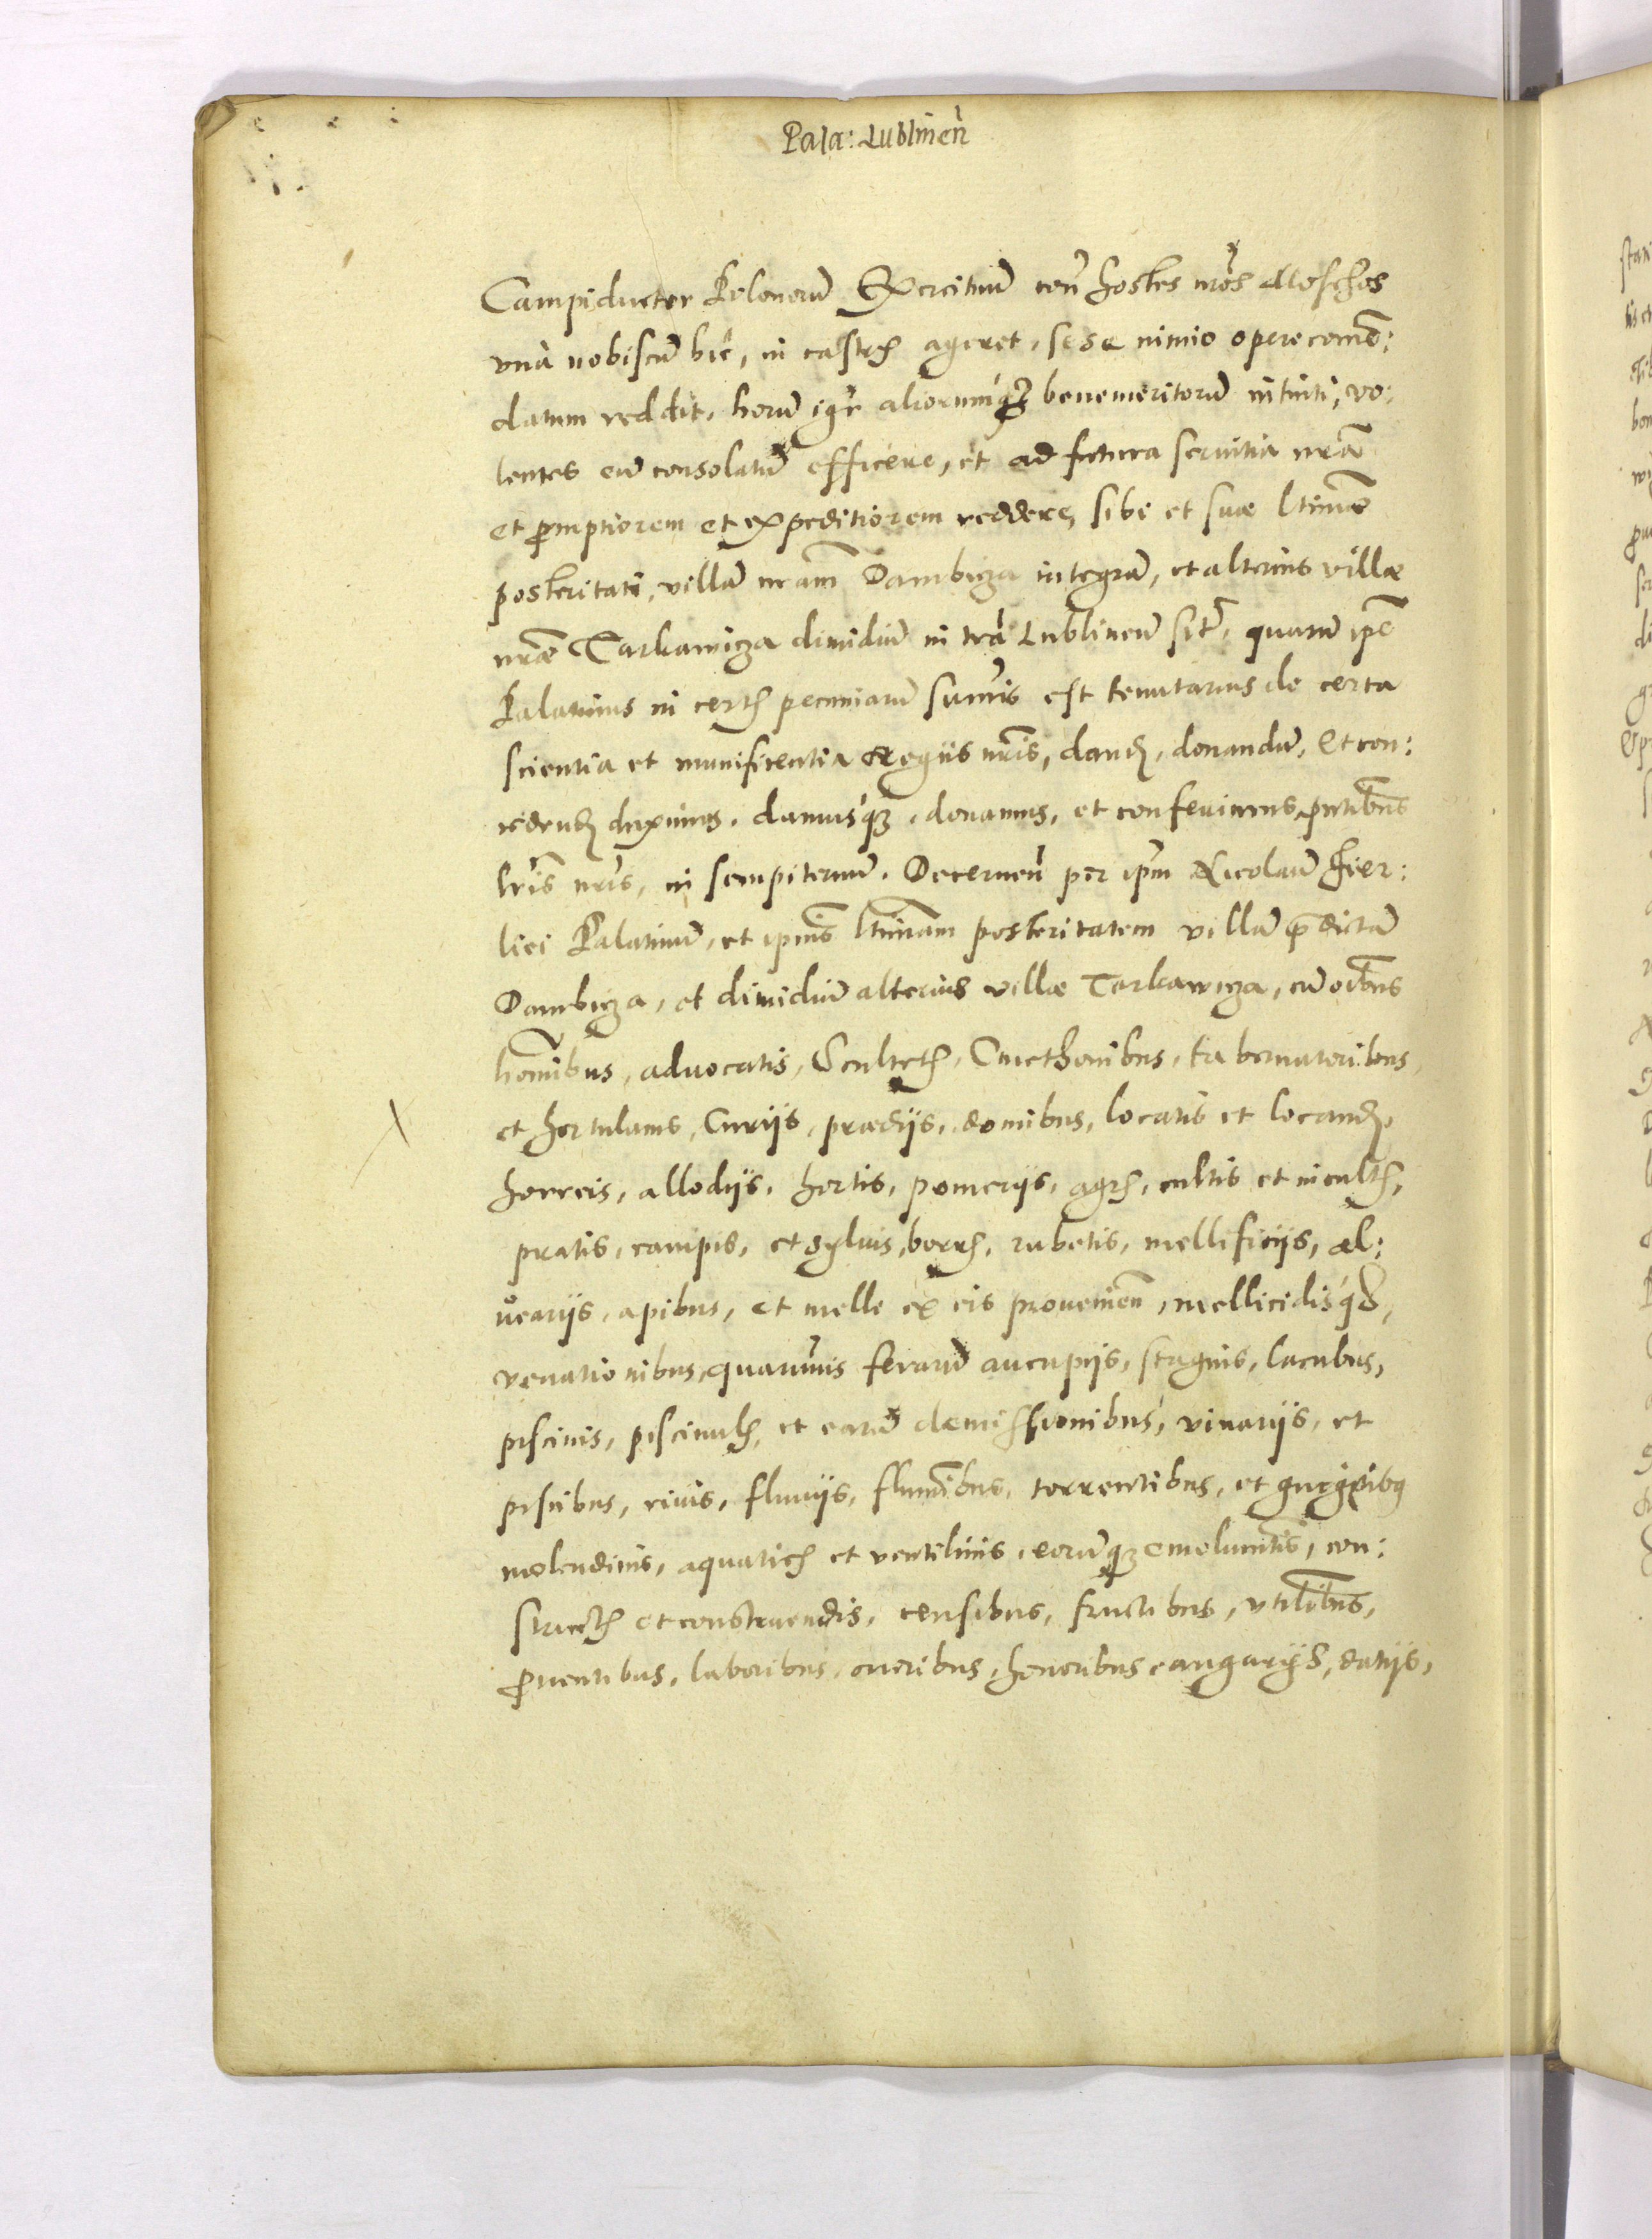 Pala: Lublineñ
Campiductor Polonorũ Exercituũ coñ hostes nr̃os Moschos
vnà nobiscũ hic, in castris ageret, sese nimio opere com̃e:
datum reddit, horũ igr̃ aliorumq́ꝫ benemeritorũ intuiti, vo:
lentes eũ consolatũ efficere, et ad futura seruitia nr̃a
et ꝓmptiorem et expeditiorem reddere, sibi et suæ ltimæ
posteritati, villã nr̃am Dambicza integrã, et alterius villæ
nr̃æ Tarkawicza dimidiũ in tr̃a Lublineñ sit̃, quarũ ip̃e
Palatinus in certis pecuniarũ sum̃is est tenutarius de certa
scientia et munificentia Regiis nr̃is, dand, donandũ, et con:
cedend duximus, damusq́ꝫ, donamus, et conferimus, pñtibus
lr̃is nr̃is, in sempiternũ. Decerneñ per ip̃m Nicolaũ Fier:
liei Palatinũ, et ipius ltimam posteritatem villã p̃dictã
Dambicza, et dimidiũ alterius villæ Tarkawicza, cũ oĩbus
hom̃ibus, aduocatis, Scultetis, Cmethonibus, tabernatoribus,
et hortulanis, Curijs, prædijs, domibus, locatis et locand,
horreis, allodijs, hortis, pomerijs, agris, cultis et incultis,
pratis, campis, et syluis, borris, rubetis, mellificijs, al:
uearijs, apibus, et melle ex eis prouenieñ, mellicidisq́ꝫ,
venationibus, quarum̃uis ferarũ aucupijs, stagnis, lacubus,
piscinis, piscinulis, et earũ demissionibus, viuarijs, et
piscibus, riuis, fluuijs, flum̃ibus, torrentibus, et gurgitibus
molendinis, aquaticis et ventilinis, eorũq́ꝫ emolum̃tis, con:
structis et construendis, censibus, fructibus, vtilitibus,
ꝓuentibus, laboribus, oneribus, honoribus, angarijs, datijs,